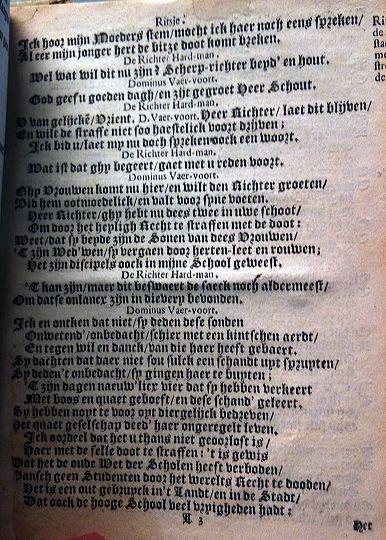 Ritsje.
Ick hoor mijn Moeders stem/mocht ick haer noch eens spreken/
Al eer mijn jonger hert de bitze doot komt breken.
De Richter Hard-man.
Wel wat wil dit nu zijn? Scherp-richter beyd' en hout.
Dominus Vaer-voort.
God geef u goeden dagh/en zijt gegroet Heer Schout.
De Richter Hard-man.
V van gelijcke/Vrient. D. Vaer-voort. Heer Richter/ laet dit blijven/
En wilt de straffe niet soo haestelick voort drijven;
Ick bid u/laet my nu doch spreken oock een woort.
De Richter Hard-man.
Wat ist dat ghy begeert/gaet met u reden voort.
Dominus Vaer-voort.
Ghy Vrouwen komt nu hier/en wilt den Richter groeten/
Bid hem ootmoedelick/en valt voor syne voeten.
Heer Richter/ghy hebt nu dees twee in uwe schoot/
Om door het heyligh Recht te straffen met de doot:
Weet/dat sy beyde zijn de Sonen van dees Vrouwen/
'T zijn Wed'wen/sy vergaen door herten-leet en rouwen;
Het zijn discipels oock in mijne School geweest.
De Richter Hard-man.
'T kan zijn/maer dit beswaert de saeck noch aldermeest/
Om datse onlancx zijn in dievery bevonden.
Dominus Vaer-voort.
Ick en ontken dat niet/sy deden dese sonden
Onwetend'/onbedacht/schier met een kintschen aerdt/
En tegen wil en danck/van die haer heeft gebaert.
Sy dachten dat daer niet sou sulck een schandt uyt spruyten/
Sy deden't onbedacht/sy gingen haer te buyten:
'T zijn dagen naeuw'lier vier dat sy hebben verkeert
Met boos en quaet geboeft/en dese schand' geleert.
Sy hebben noyt te voor oyt diergelijck bedreven/
Het quaet geselschap deed' haer ongeregelt leven.
Ick oordeel dat het u thans niet geoorloft is/
Haer met de felle doot te straffen: 't is gewis
Dat het de oude Wet der Scholen heeft verboden/
Gansch geen Studenten door het werelts Recht te dooden/
Het is een out gebruyck in't Landt/en in de Stadt/
Dat oock de hooge School veel vryigheden hadt:
A 3
Het